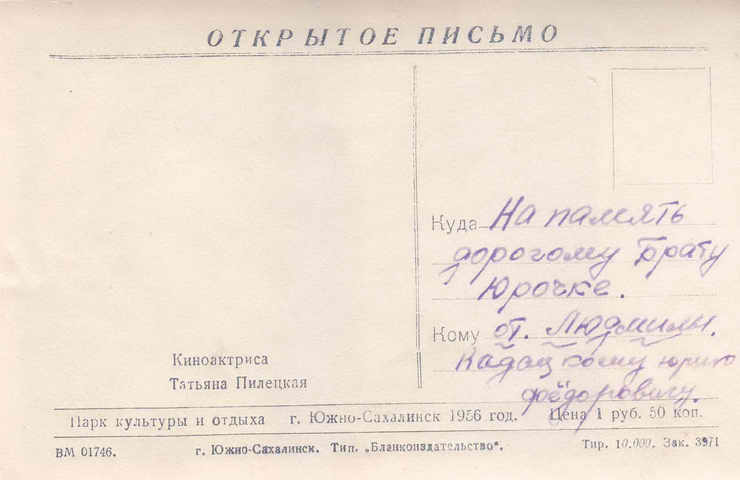 ОТКРЫТОЕ ПИСЬМО
Куда На память
дорогому брату
Юрочке.
Кому от. Людмилы.
Кадацкому юрию
фёдоровичу.
Киноактриса
Татьяна Пилецкая
Парк культуры и отдыха г. Южно-Сахалинск 1956 год. Цена 1 руб. 50 коп.
ВМ 01746. г. Южно-Сахалинск. Тип. „Бланкоиздательство“. Тир. 10.000. Зак. 3971